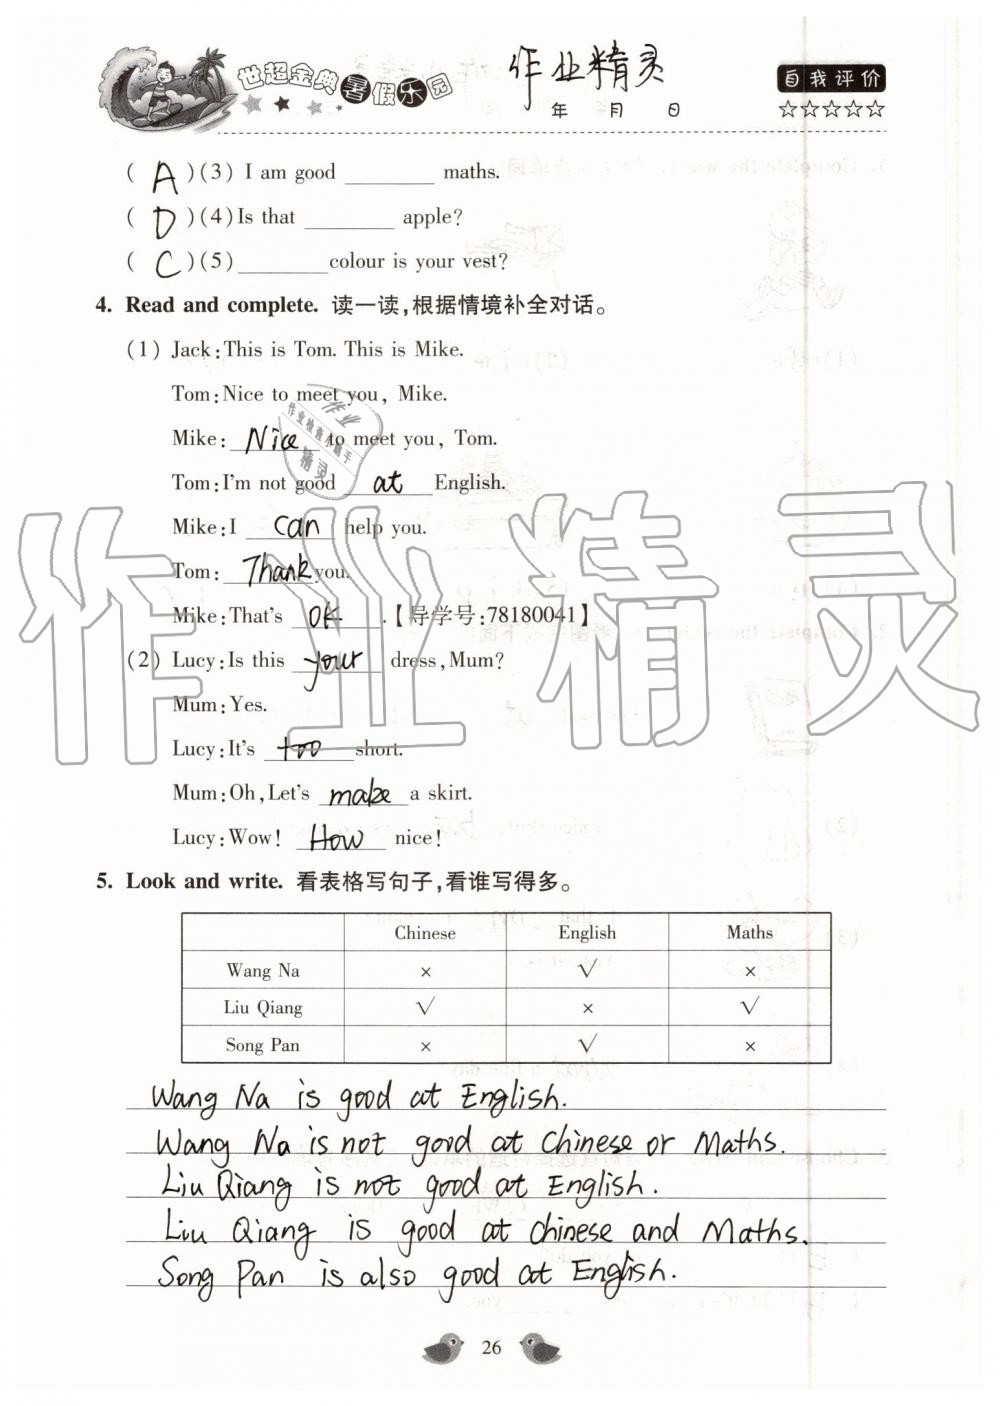 世超金典暑假乐园
作业精灵
年 月 日
自我评价
☆☆☆☆☆
( A )(3) I am good ________ maths.
( D )(4)Is that ________ apple?
( C )(5)________colour is your vest?
4. Read and complete. 读一读,根据情境补全对话。
(1) Jack:This is Tom. This is Mike.
Tom:Nice to meet you, Mike.
Mike: Nice to meet you, Tom.
Tom:I'm not good at English.
Mike:I can help you.
Tom: Thank you.
Mike:That's OK .【导学号:78180041】
(2) Lucy:Is this your dress,Mum?
Mum:Yes.
Lucy:It's too short.
Mum:Oh,Let's make a skirt.
Lucy:Wow! How nice!
5. Look and write. 看表格写句子,看谁写得多。
Chinese English Maths
Wang Na × √ ×
Liu Qiang √ × √
Song Pan × √ ×
Wang Na is good at English.
Wang Na is not good at Chinese or Maths.
Liu Qiang is not good at English.
Liu Qiang is good at Chinese and Maths.
Song Pan is also good at English.
26
作业
作业检查小助手
精灵
作业精灵